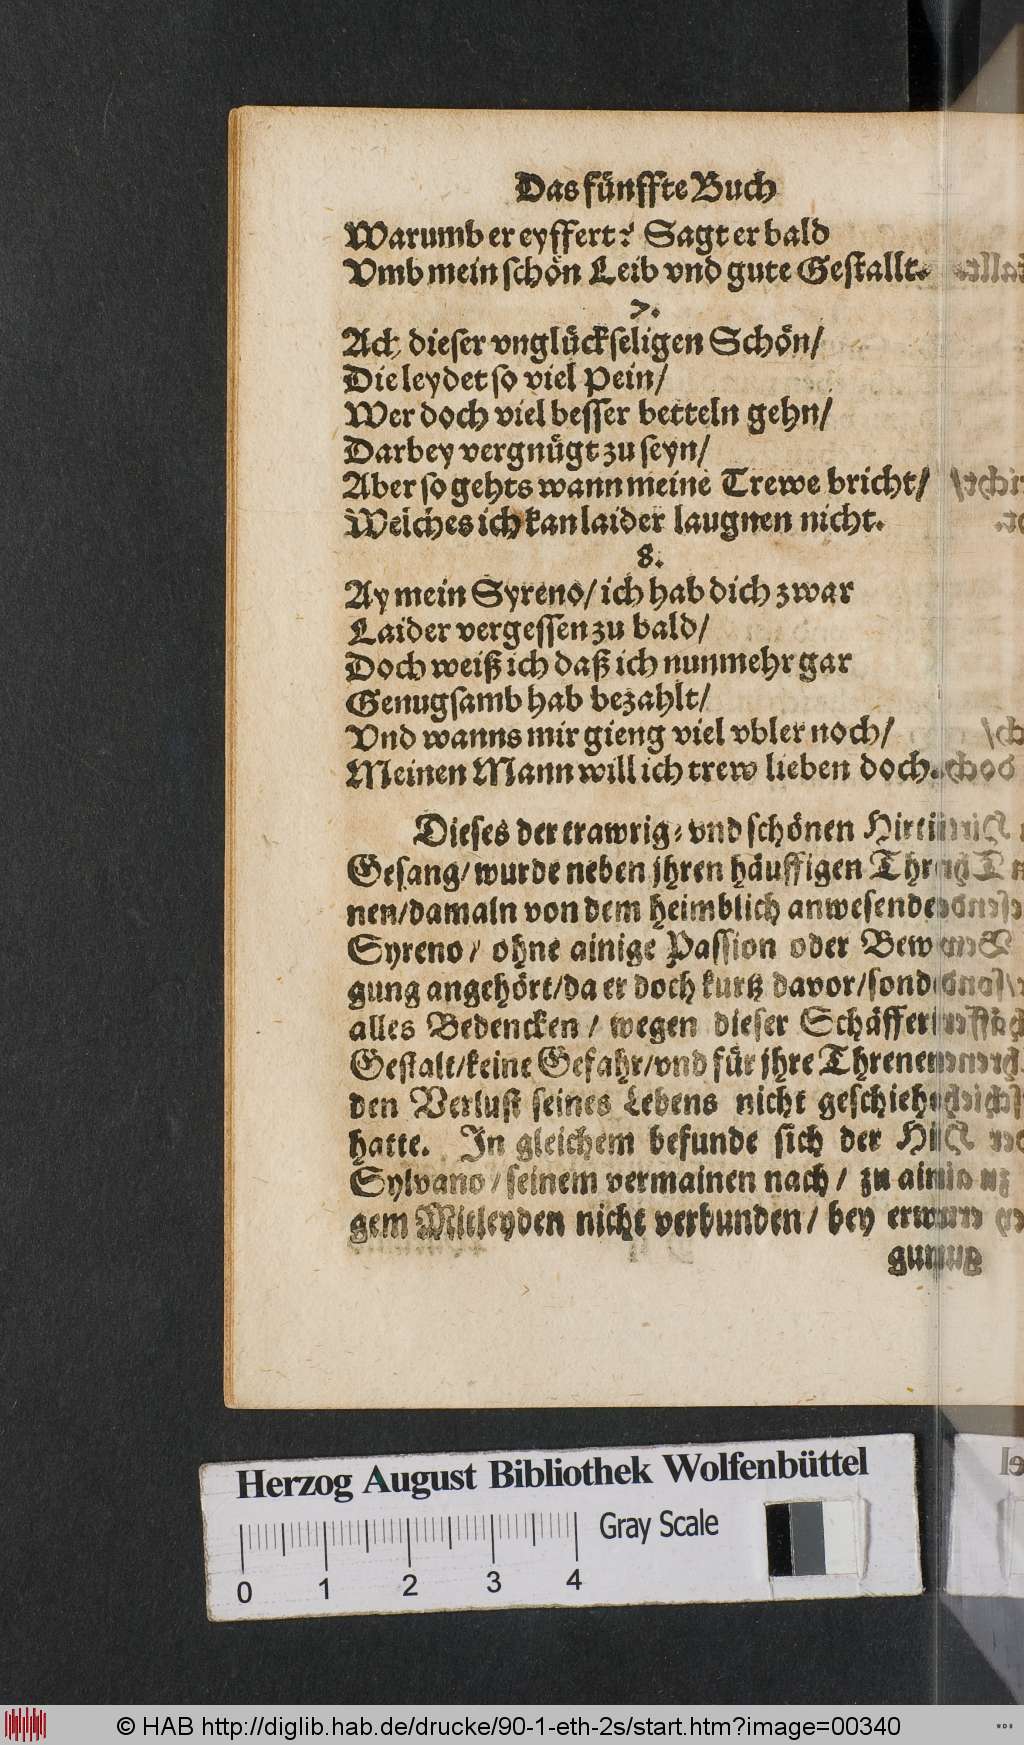 Das fünffte Buch
Warumb er eyffert? Sagt er bald
Vmb mein schön Leib vnd gute Gestallt.
7.
Ach dieser vnglückseligen Schön/
Die leydet so viel Pein/
Wer doch viel besser betteln gehn/
Darbey vergnügt zu seyn/
Aber so gehts wann meine Trewe bricht/
Welches ich kan laider laugnen nicht.
8.
Ay mein Syreno/ ich hab dich zwar
Laider vergessen zu bald/
Doch weiß ich daß ich nunmehr gar
Genugsamb hab bezahlt/
Vnd wanns mir gieng viel vbler noch/
Meinen Mann will ich trew lieben doch.
Dieses der trawrig- vnd schönen
Gesang/ wurde neben jhren häuffigen
nen/damaln von dem heimblich
Syreno/ ohne ainige Passion oder
gung angehört/da er doch kurtz davor/
alles Bedencken/ wegen dieser
Gestalt/keine Gefahr/vnd für jhre
den Verlust seines Lebens nicht
hatte. In gleichem befunde sich der
Sylvano/seinem vermainen nach/ zu
gem Mitleyden nicht verbunden/ bey
Herzog August Bibliothek Wolfenbüttel
Gray Scale
0 1 2 3 4
© HAB http://diglib.hab.de/drucke/90-1-eth-2s/start.htm?image=00340